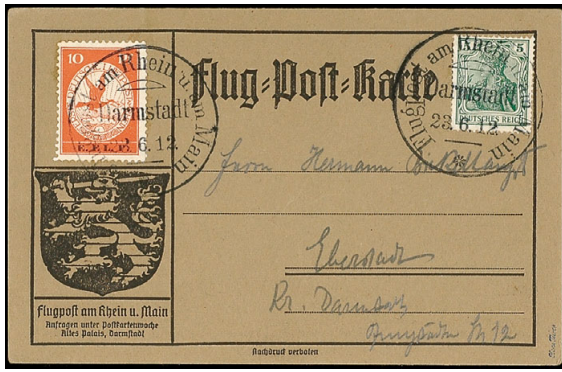 Flug=Post=Karte
10
Flugpost am Rhein u. am Main
Darmstadt
23.6.12.
5
DEUTSCHES REICH
Flugpost am Rhein u. am Main
Darmstadt
23.6.12.
Herrn Hermann
Eberstadt
Kr. Darmstadt
12
Flugpost am Rhein u. Main
Anfragen unter Postkartenwoche
Altes Palais, Darmstadt
Nachdruck verboten